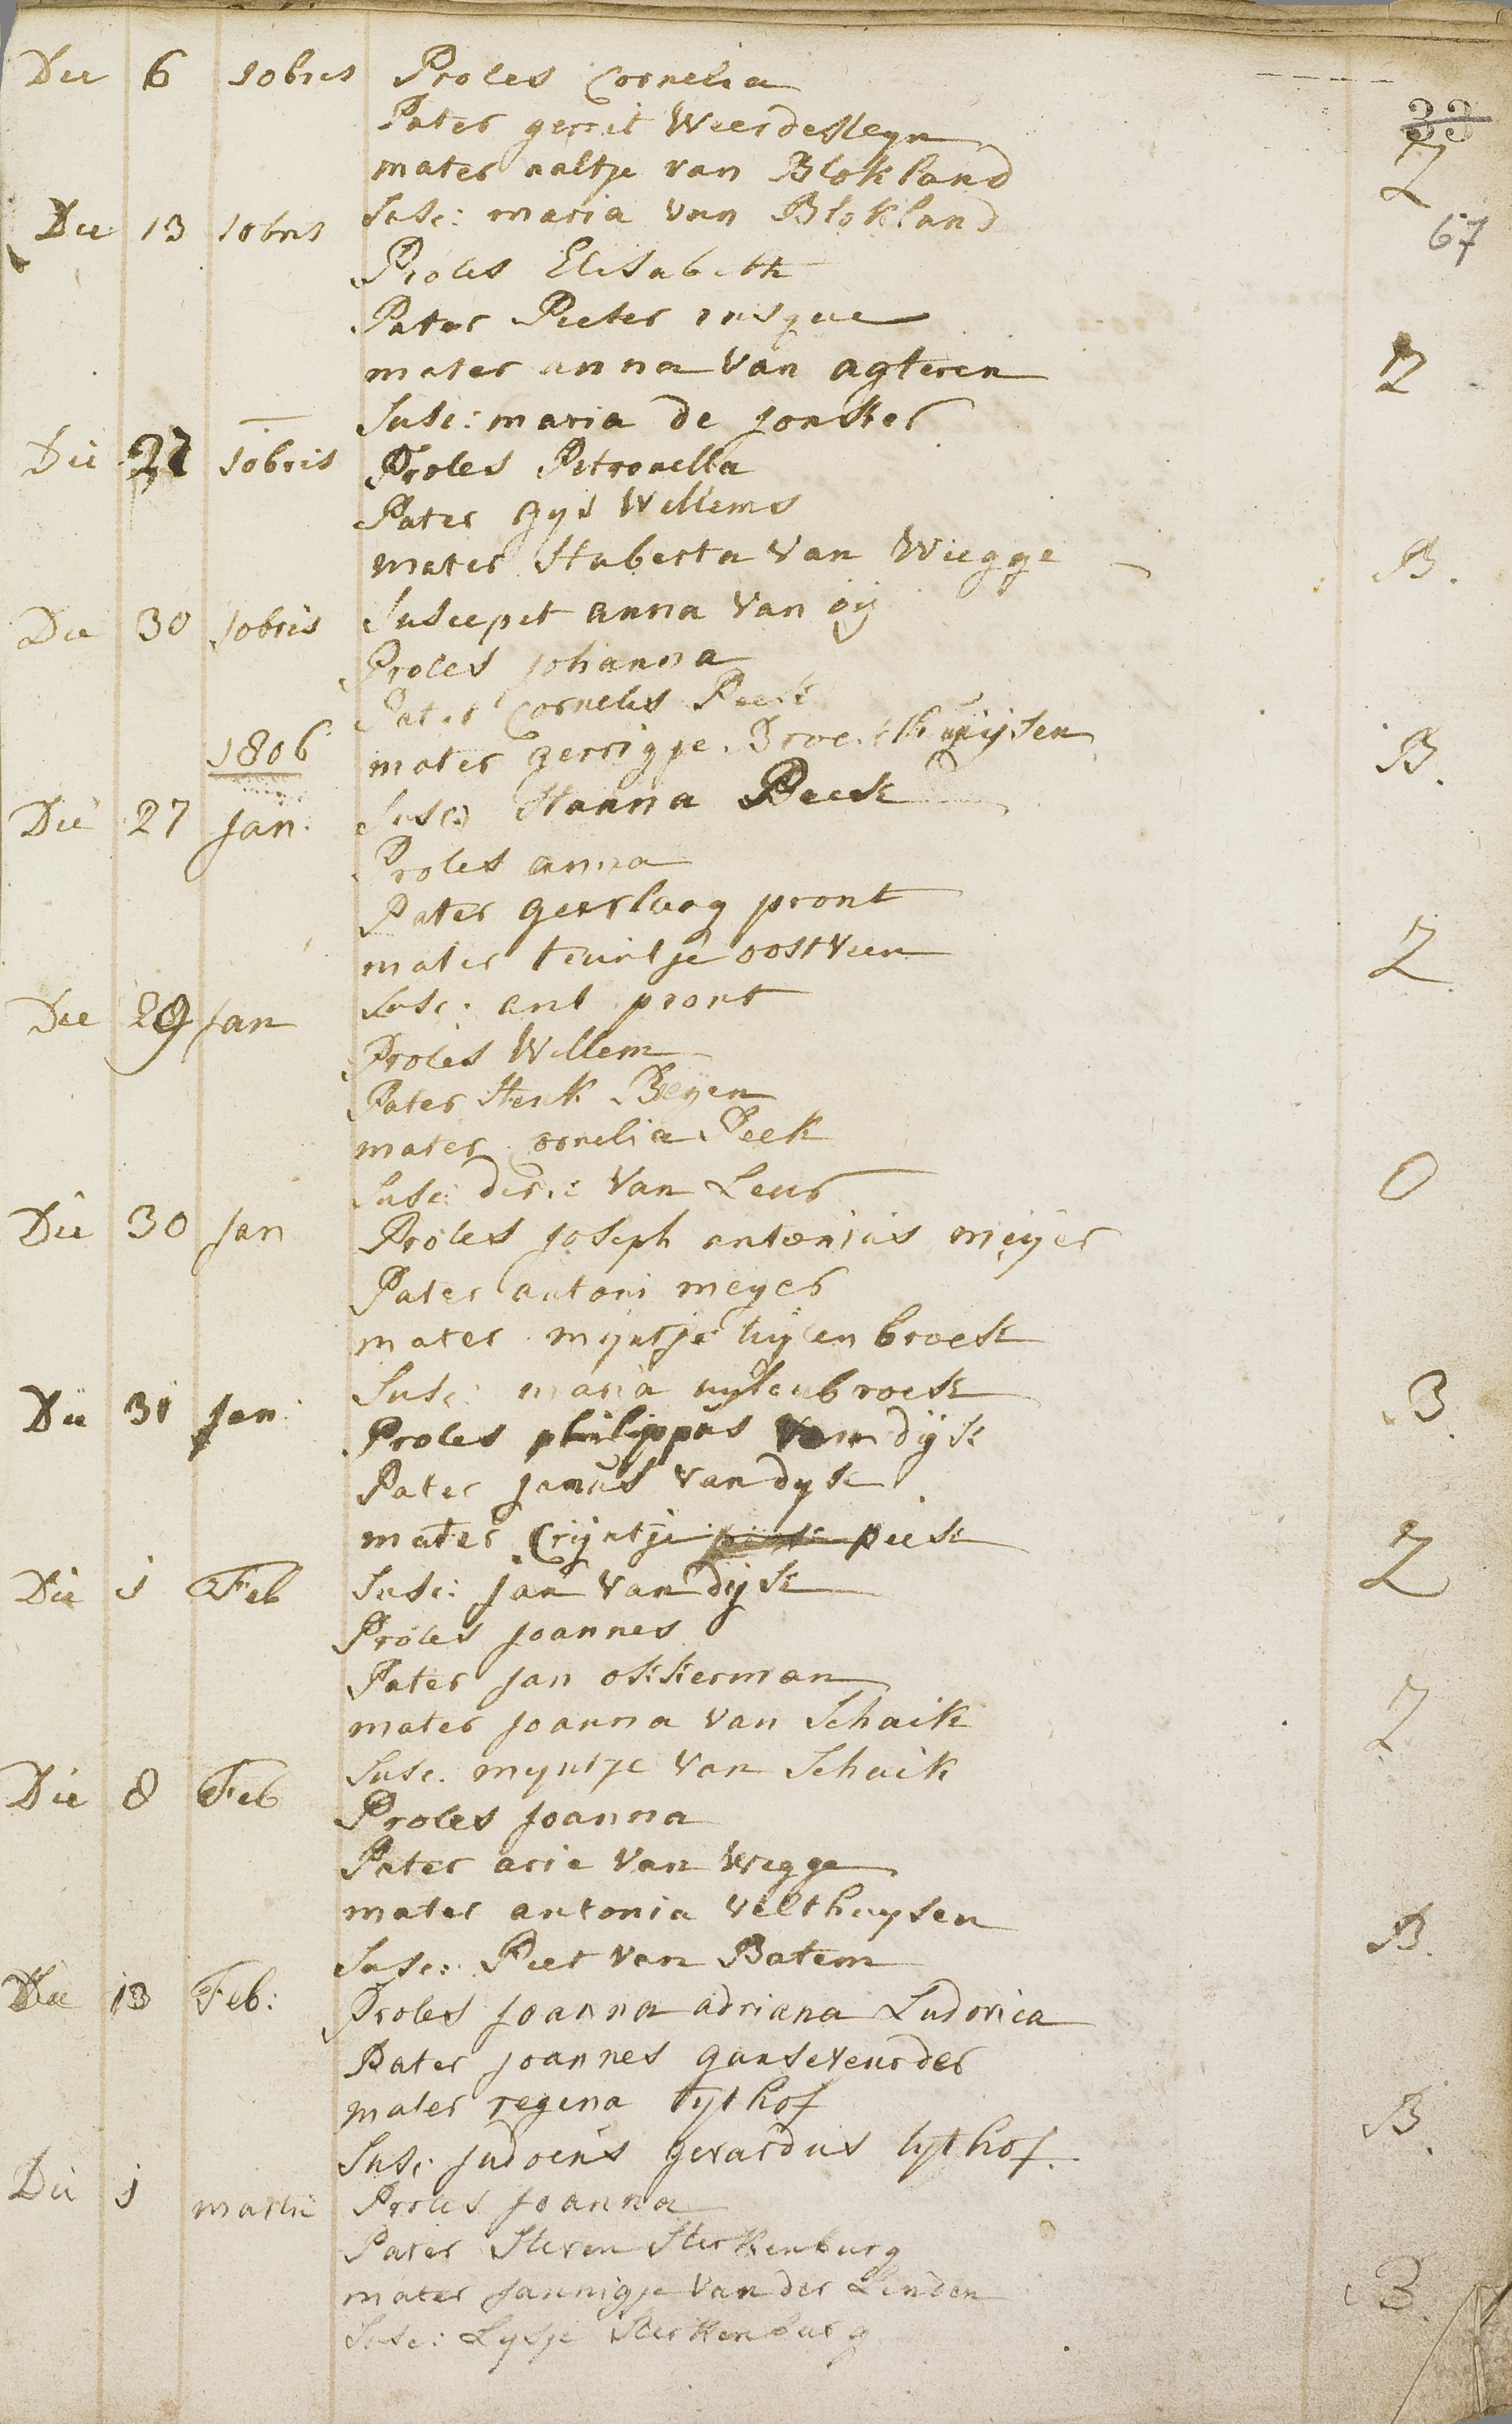 33
67
Die 6 10bris Proles Cornelia
Pater gerrit Weerdesteyn
mater aaltje van Blokland Z
Die 13 10bris Susc: maria van Blokland
Proles Elisabeth
Pater Pieter
mater anna Van agteren Z
Susc: maria de jonker
Die 27 10bris Proles Petronella
Pater gys Willems
mater Huberta Van Wiegge B.
Die 30 10bris Suscepit anna Van oij
Proles johanna
Pater Cornelis Peek
1806 mater gerrigje Broekhuijsen B.
Die 27 jan. Susc: Hanna Peek
Proles anna
Pater geerlaag pront
mater teuntje oostveen Z
Die 29 jan Susc: ant pront
Proles Willem
Pater Henk Beyen
mater Cornelia Peek
Susc: der: Van Leur O
Die 30 jan Proles joseph antonius meijer
Pater antoni meyer
mater mijntje uijlenbroek
Susc: maria uylenbroek B.
Die 31 jan: Proles philippus Van dijk
Pater janus Van dyk
mater Crijntje piek Z
Die 1 Feb Susc: jan Van dijk
Proles joannes
Pater jan okkerman
mater joanna Van Schaik Z
Susc. myntje Van Schaik
Die 8 Feb Proles joanna
Pater arie Van Wegge
mater antonia Velthuysen B.
Susc: Piet Van Batem
Die 13 Feb: Proles joanna adriana Ludovica
Pater joannes gansevoorder
mater regina lythof B.
Susc: judocus gerardus lythof
Die 1 martii Proles joanna
Pater Steven Sterkenburg
mater jannigje Van der Linden B.
Susc: Lysje Sterkenburg